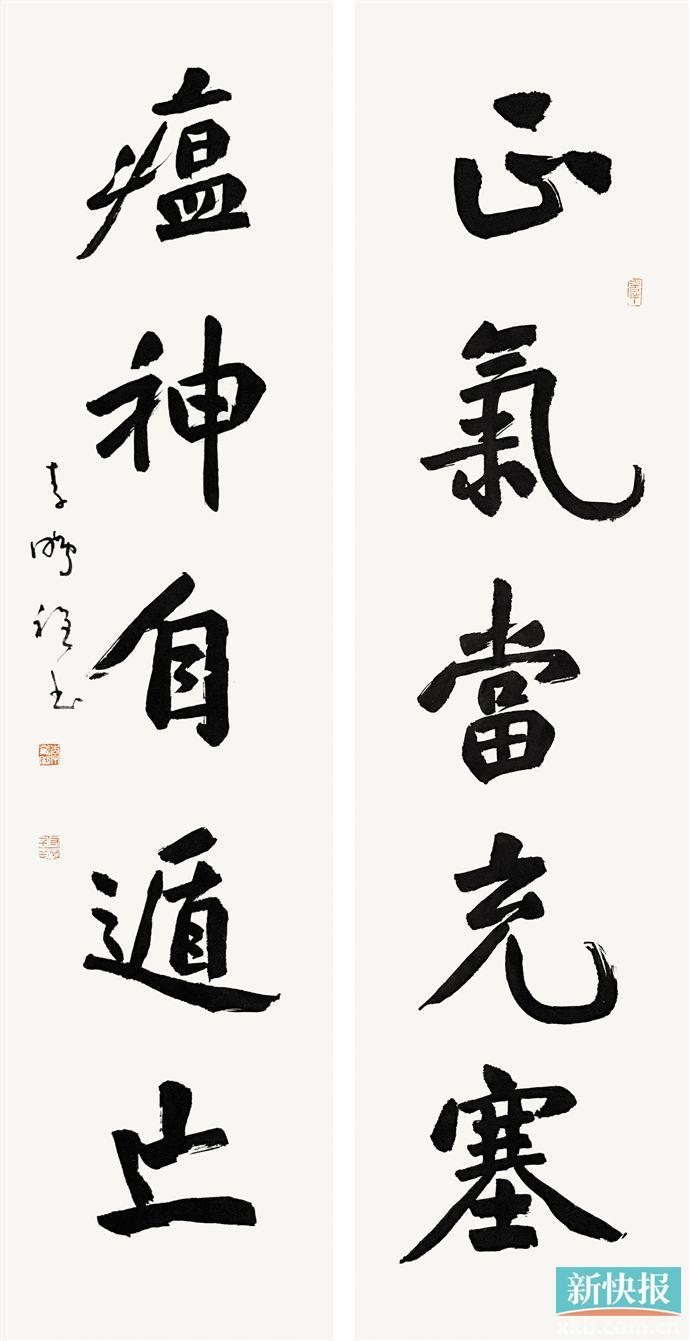 正氣當充塞
瘟神自遁止
李鵬程书
新快报
xkb.com.cn